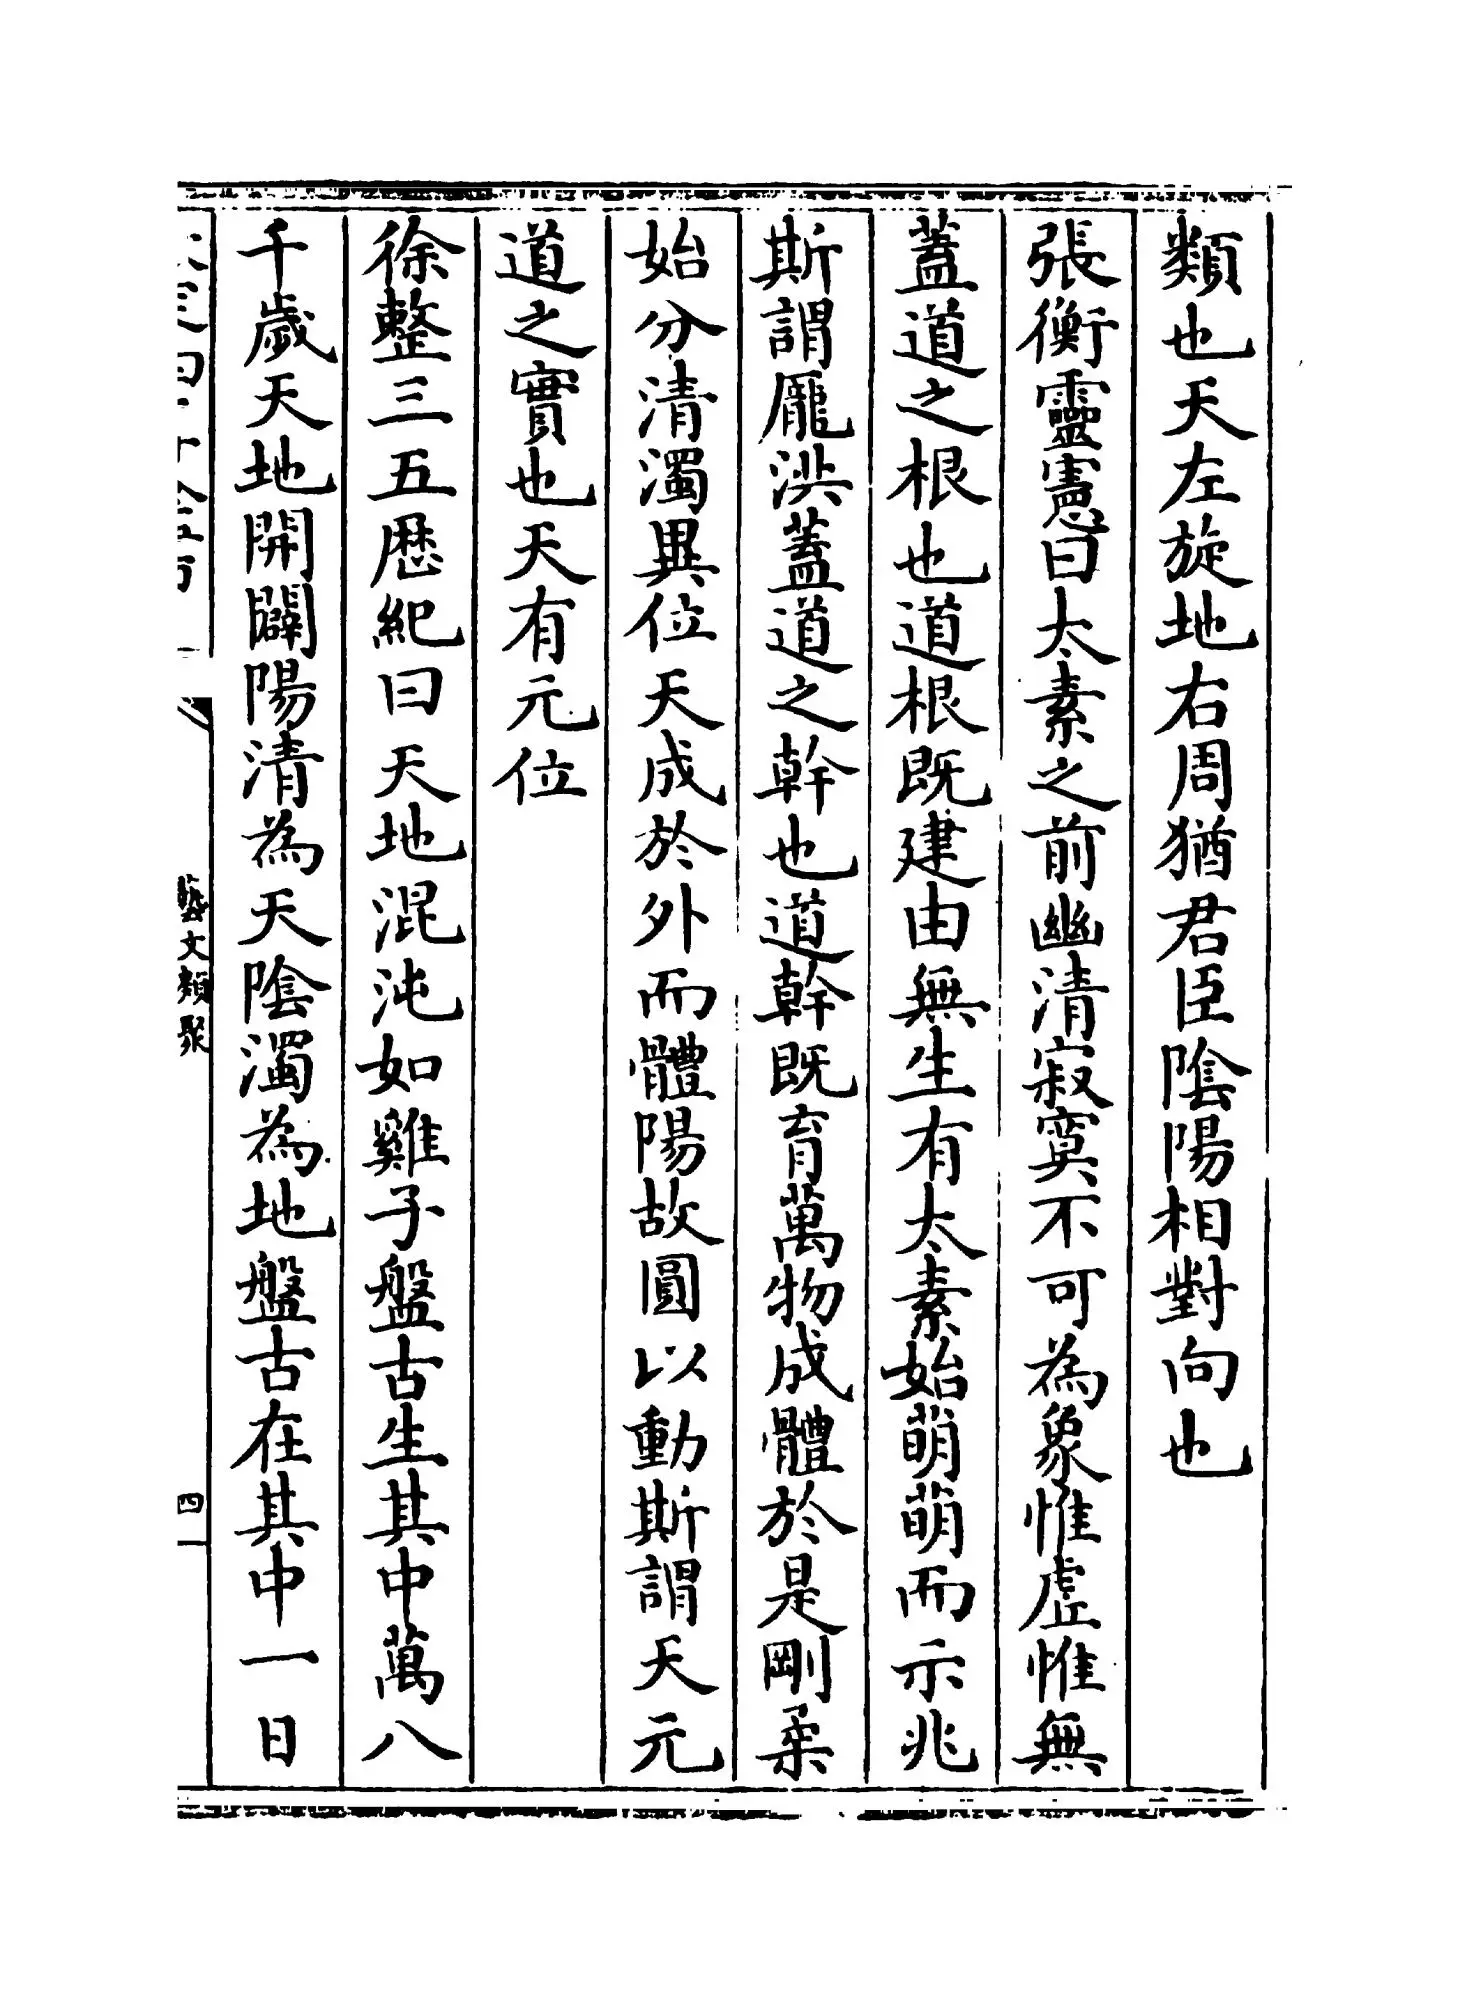 類也天左旋地右周猶君臣陰陽相對向也
張衡靈憲曰太素之前幽清寂寞不可為象惟虚惟無
蓋道之根也道根既建由無生有太素始萌萌而示兆
斯謂厖洪蓋道之幹也道幹既育萬物成體於是剛柔
始分清濁異位天成於外而體陽故圓以動斯謂天元
道之實也天有元位
徐整三五厯紀曰天地混沌如雞子盤古生其中萬八
千歲天地開闢陽清為天陰濁為地盤古在其中一日
藝文類聚
四